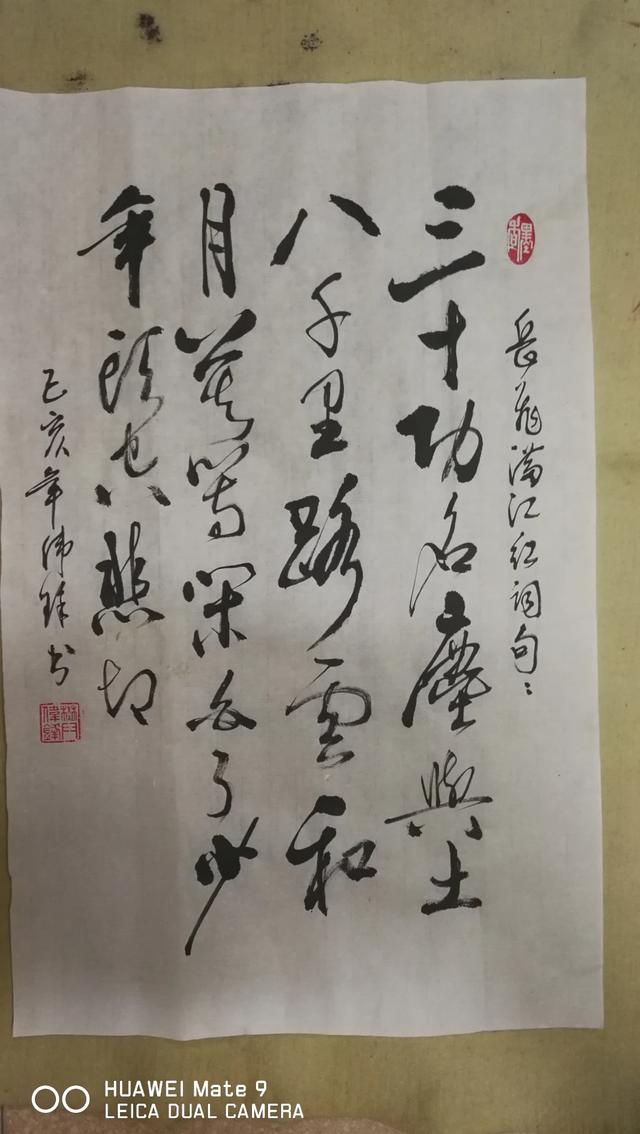 岳飛滿江紅詞句
三十功名塵與土
八千里路雲和
月莫等閑白了少
年頭空悲切
己亥年偉鋒书
林印偉鋒
HUAWEI Mate 9
LEICA DUAL CAMERA